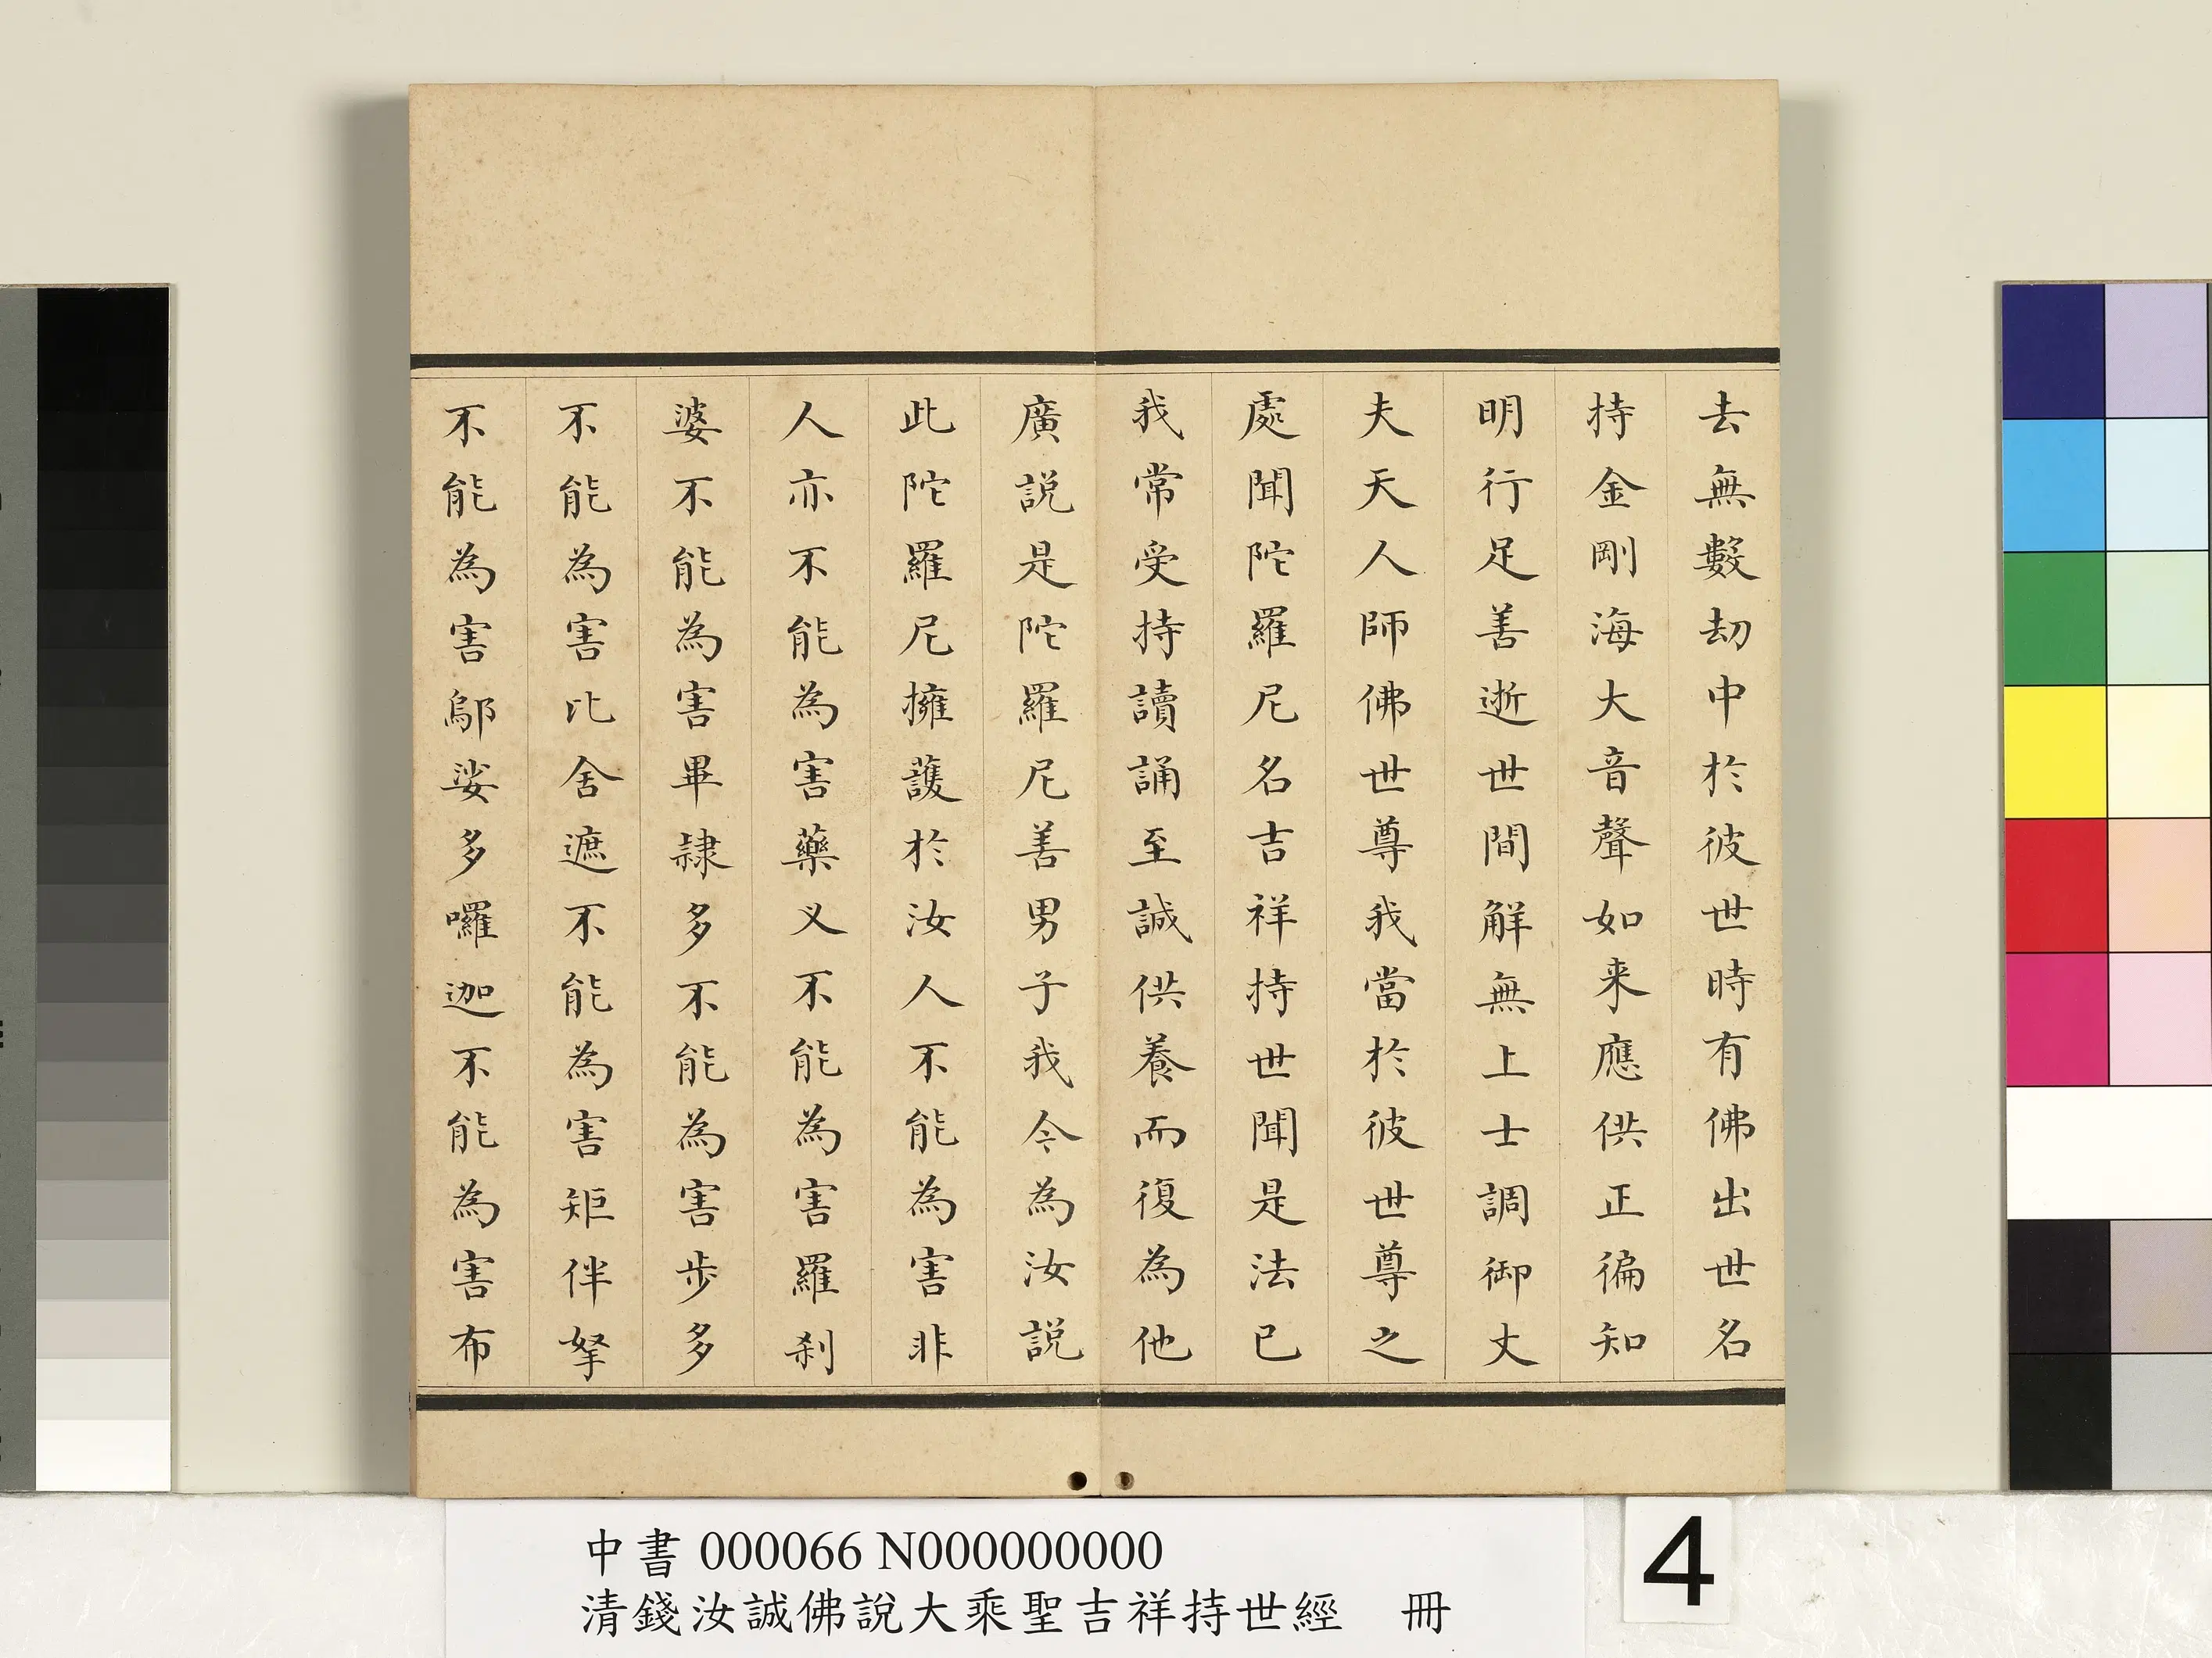 去無數劫中於彼世時有佛出世名
持金剛海大音聲如来應供正徧知
明行足善逝世間解無上士調御丈
夫天人師佛世尊我當於彼世尊之
處聞陀羅尼名吉祥持世聞是法已
我常受持讀誦至誠供養而復為他
廣說是陀羅尼善男子我今為汝說
此陀羅尼擁護於汝人不能為害非
人亦不能為害藥义不能為害羅刹
婆不能為害畢隸多不能為害步多
不能為害比舍遮不能為害矩伴拏
不能為害鄔娑多囉迦不能為害布
中書 000066 N000000000
清錢汝誠佛說大乘聖吉祥持世經 冊
4